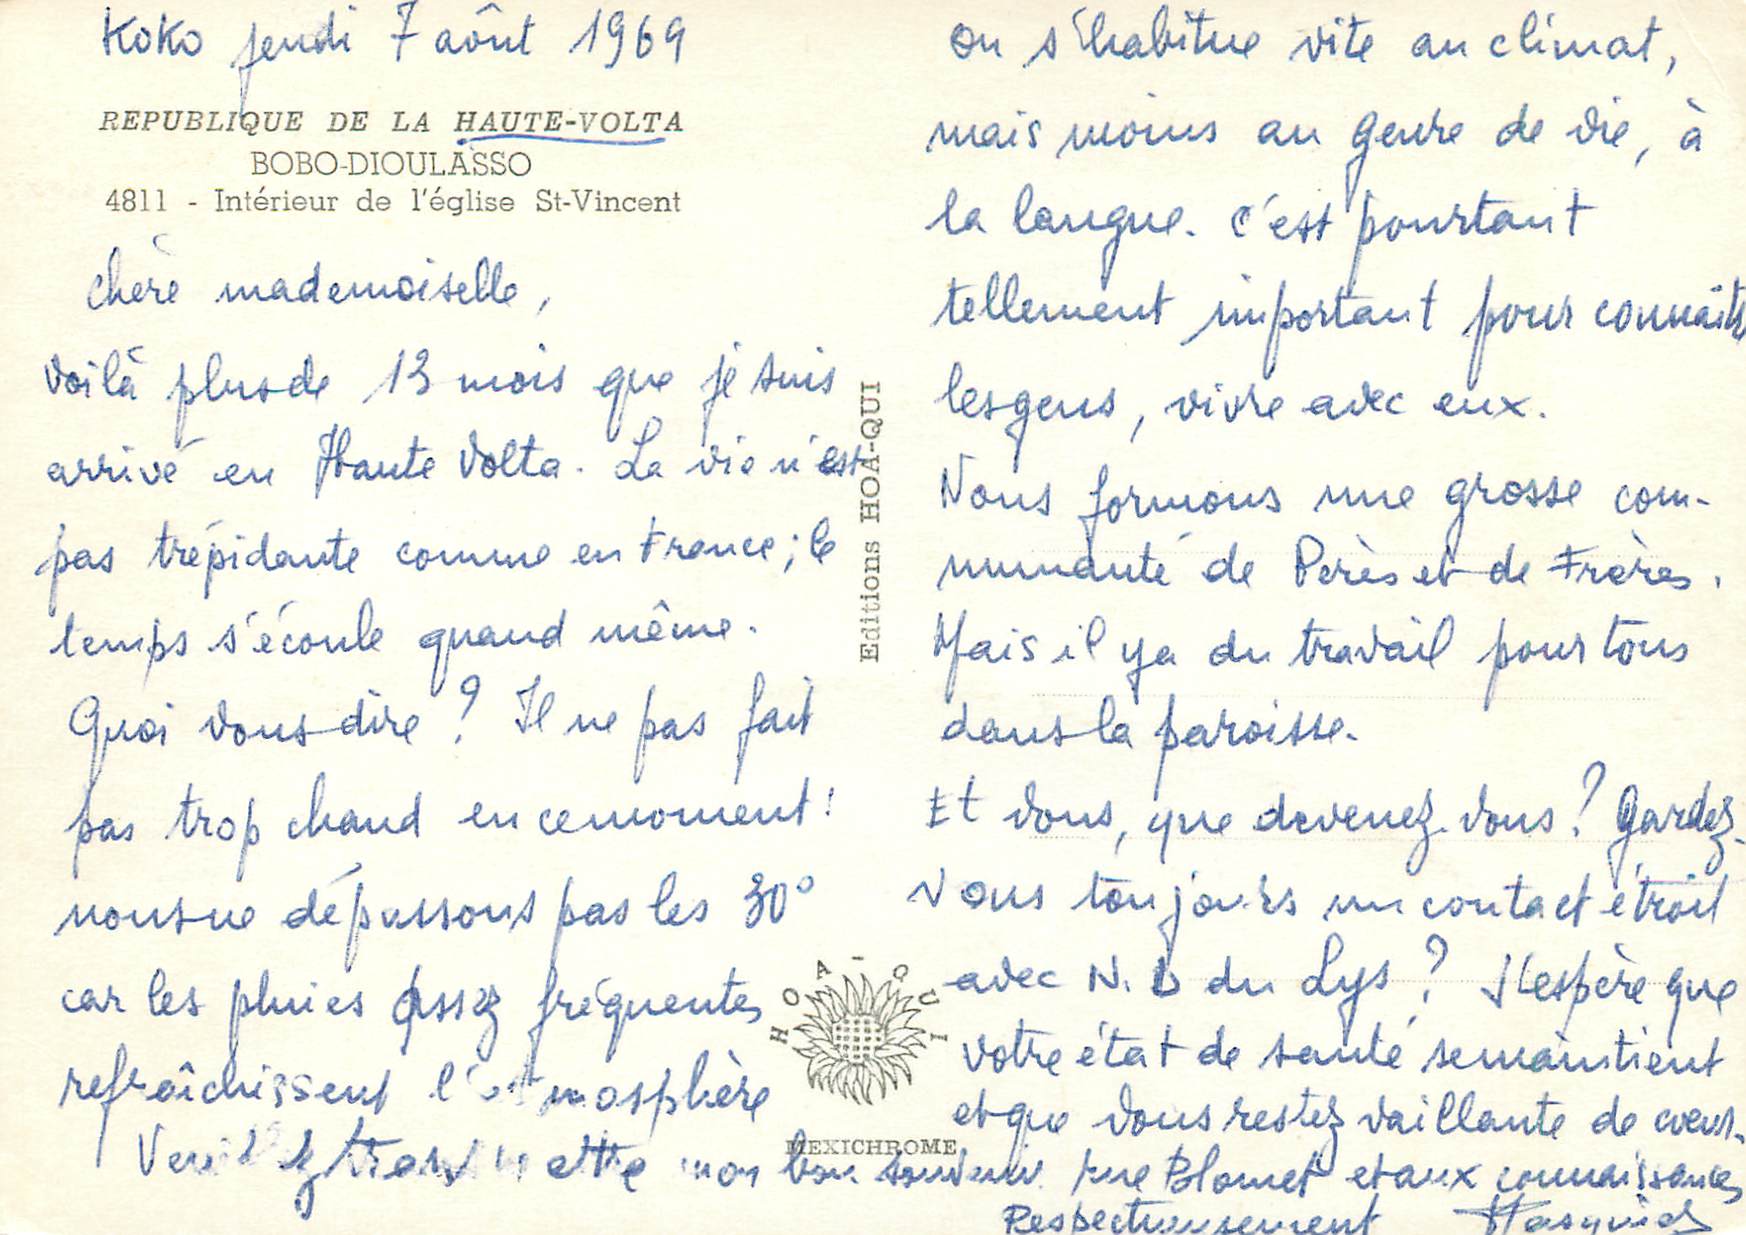 Koko jeudi 7 août 1969
REPUBLIQUE DE LA HAUTE-VOLTA
BOBO-DIOULASSO
4811 - Intérieur de l'église St-Vincent
chère mademoiselle,
voilà plus de 13 mois que je suis
arrivé en Haute Volta. La vie n'est
pas trépidante comme en France ; le
temps s'écoule quand même.
Quoi vous dire ? Il ne pas fait
pas trop chaud en ce moment !
nous ne dépassons pas les 30°
car les pluies assez fréquentes
refraîchissent l'atmosphère
on s'habitue vite au climat,
mais moins au genre de vie, à
la langue. c'est pourtant
tellement important pour connaître
les gens, vivre avec eux.
Nous formons une grosse com-
munauté de Pères et de Frères.
Mais il y a du travail pour tous
dans la paroisse.
Et vous, que devenez-vous ? Gardez-
vous toujours un contact étroit
avec N. D du Lys ? J'espère que
votre état de santé se maintient
et que vous restez vaillante de coeur.
Veuillez transmettre mon bon souvenir rue Blomet et aux connaissances
Respectueusement
Editions HOA-QUI
HOA-QUI
MEXICHROME